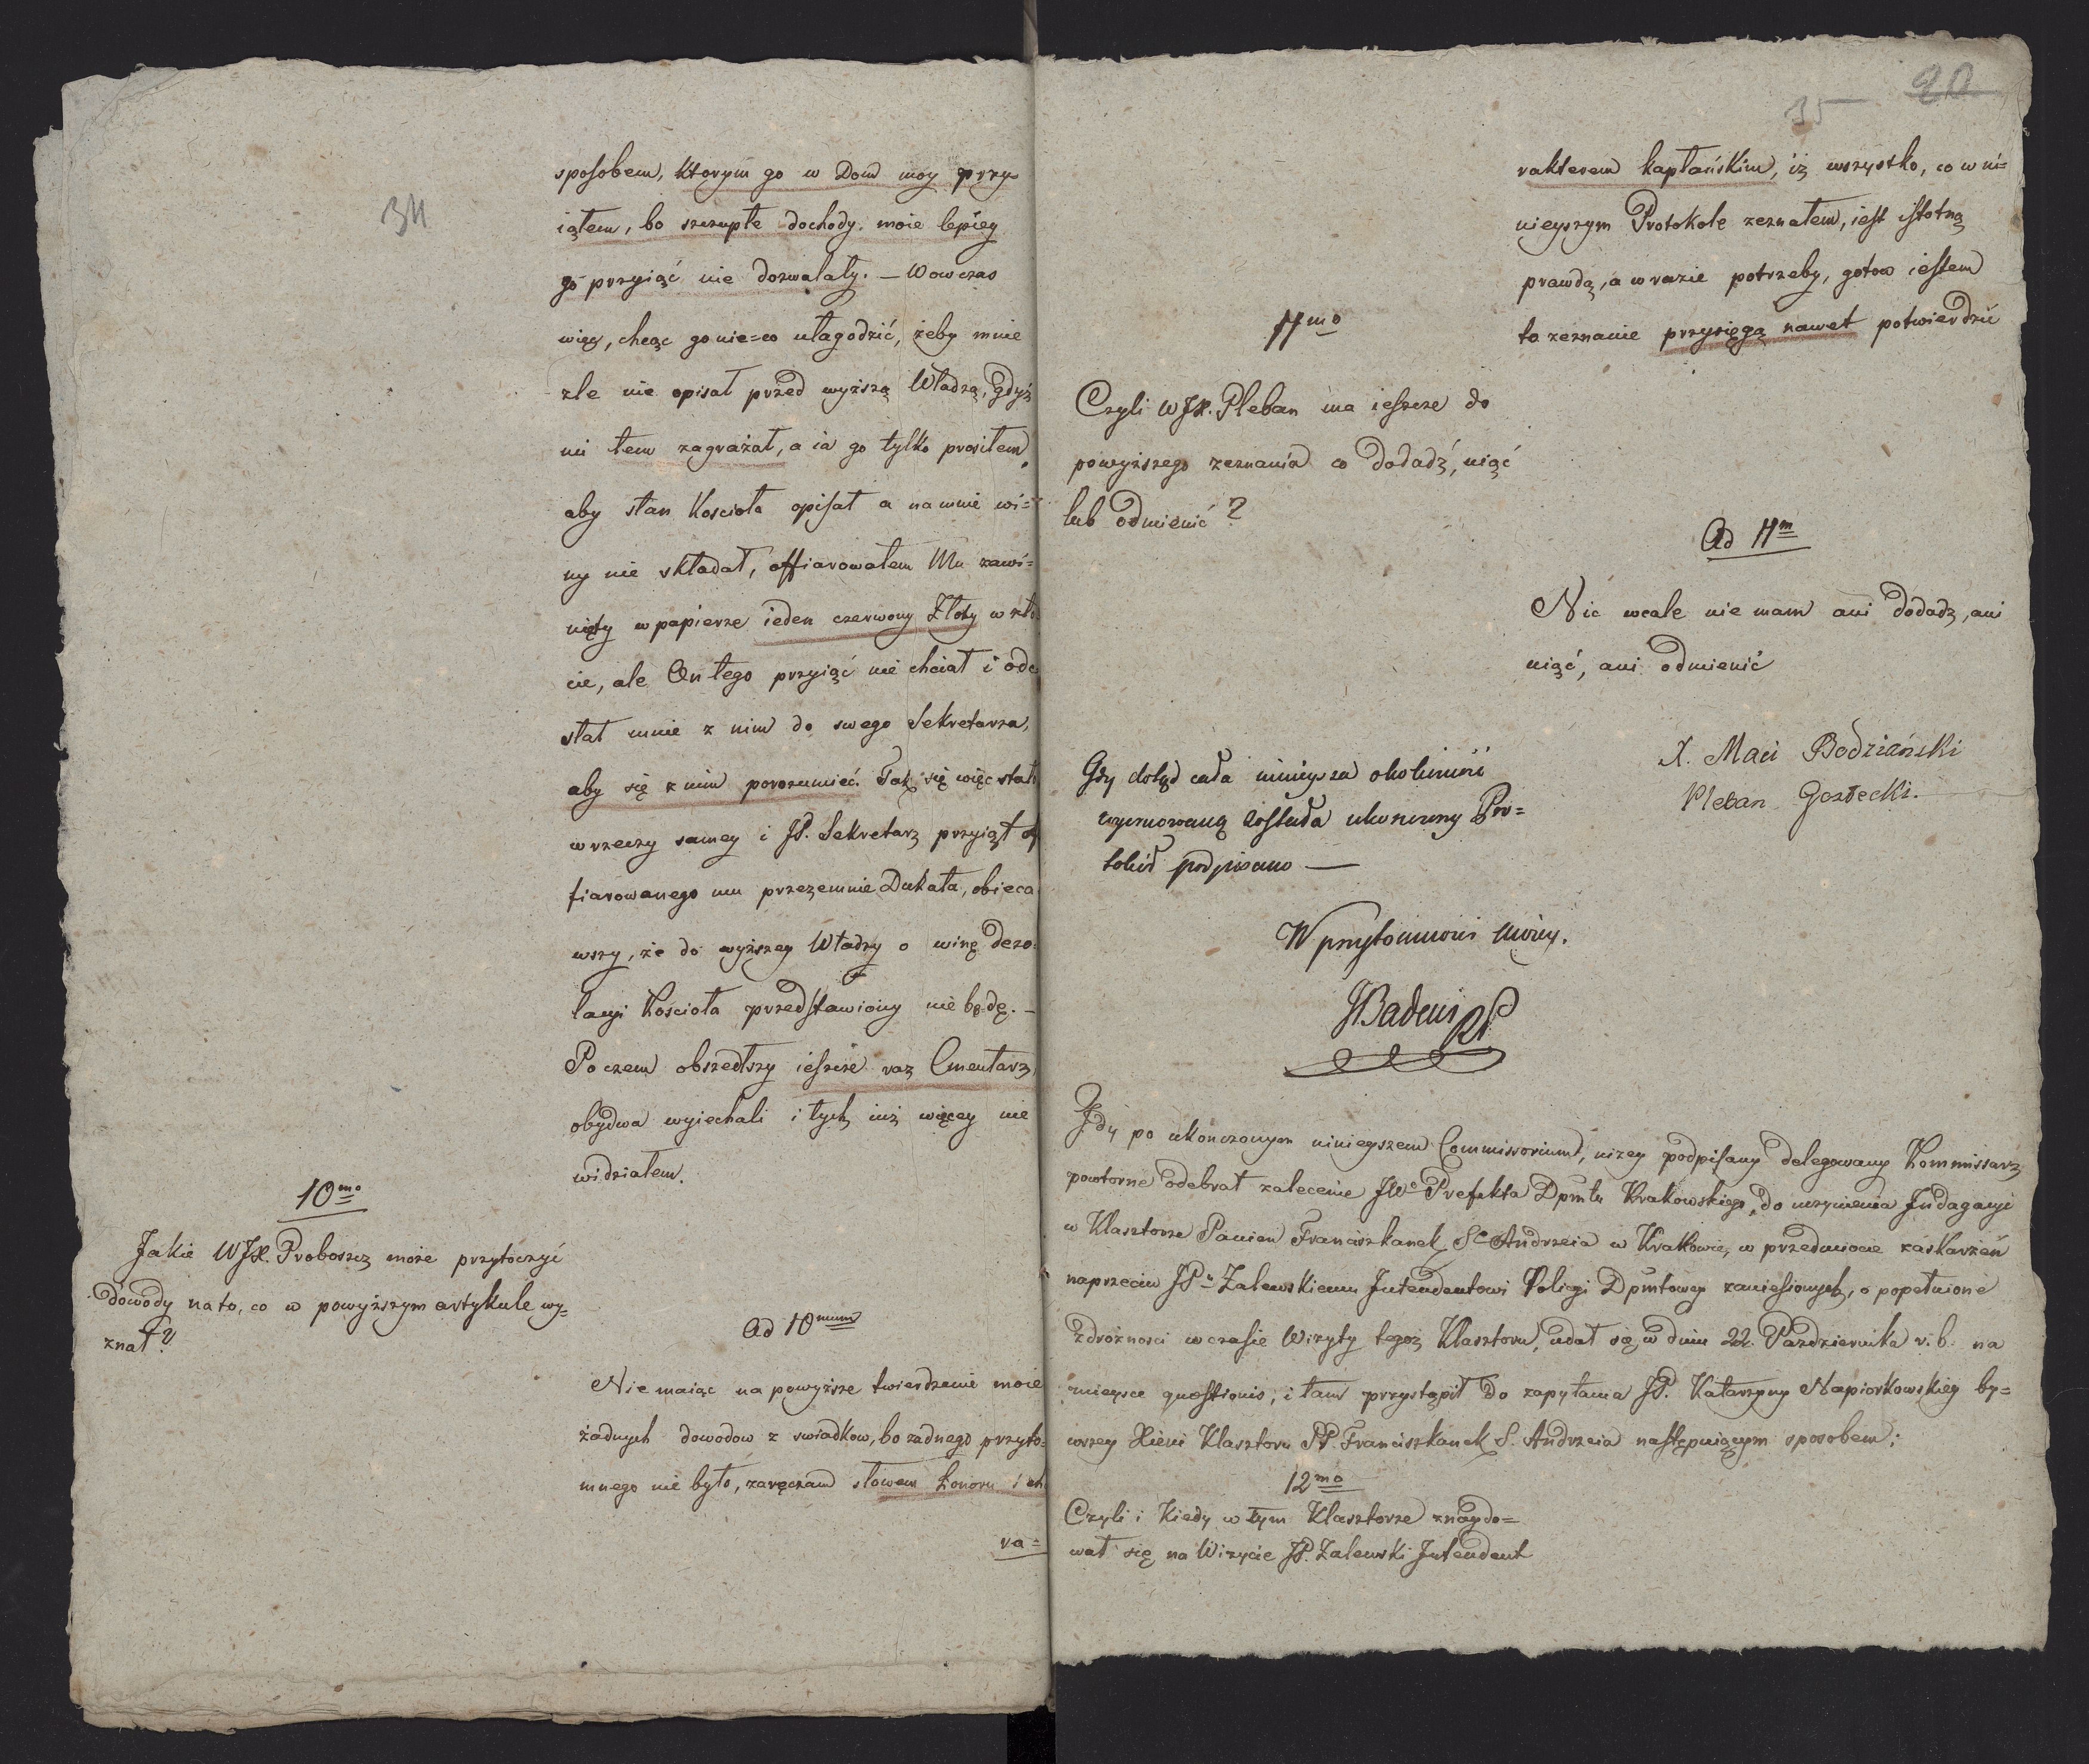 34
sposobem, ktorym go w Dom moy przy-
iąłem, bo szczupłe dochody moie lepiey
go przyiąć nie dozwalały. — Wowczas
więc, chcąc go nie=co ułagodzić, żeby mnie
zle nie opisał przed wyższą Władzą, gdyż
mi tem zagrażał, a ia go tylko prosiłem,
aby stan Kościoła opisał a na mnie wi=
ny nie składał, offiarowałem Mu zawi=
nięty w papierze ieden czerwony Złoty w zło
cie, ale On tego przyiąć nie chciał i ode
słał mnie z nim do swego Sekretarza,
aby się z nim porozumieć. Tak się więc stało
w rzeczy samey i JP. Sekretarz przyiął of
fiarowanego mu przezemnie Dukata, obieca
wszy, że do wyższey Władzy o winę dezo=
lacyi Kościoła przedstawiony nie będę. —
Poczem obszedłszy ieszcze raz Cmentarz,
obydwa wyiechali i tych iuż więcey nie
widziałem.
10mo
Jakie WJX. Proboszcz może przytoczyć
dowody na to, co w powyższym artykule wy=
znał?
Ad 10mum
Nie maiąc na powyższe twierdzenie moie
żadnych dowodow z swiadkow, bo żadnego przyto=
mnego nie było, zaręczam słowem honoru i cha
ra=
35
20
rakterem kapłańskim, iż wszystko, co w ni=
nieyszym Protokole zeznałem, iest istotną
prawdą, a w razie potrzeby, gotow iestem
to zeznanie przysięgą nawet potwierdzić
11mo
Czyli WJX. Pleban ma ieszcze do
powyższego zeznania co dodadź, uiąć
lub odmienić?
Ad 11m
Nic wcale nie mam ani dodadz, ani
uiąć, ani odmienić
X. Maci Bodziański
Pleban Goszecki.
Gdy dotąd cała ninieysza okoliczność
wyczerpaną została ukończony Pro=
tokuł podpisano —
W przytomności moiey.
Badeni
Gdy po ukończonym ninieyszem Commissorium, niżey podpisany delegowany Kommissarz
powtorne odebrał zalecenie JWo Prefekta Dpmtu Krakowskiego, do uczynienia Indagacyi
w Klasztorze Panien Franciszkanek So Andrzeia w Krakowie, w przedmiocie zaskarżeń
naprzeciw JPu Zalewskiemu Intendentowi Policyi Dpmtowey zaniesionych, o popełnione
zdrożności w czasie Wizyty tegoż Klasztoru, udał się w dniu 22. Pazdziernika r. b. na
mieysce quaestionis, i tam przystąpił do zapytania JP. Katarzyny Napiorkowskiey by=
wszey Xieni Klasztoru PP. Franciszkanek S. Andrzeia następuiącym sposobem:
12mo
Czyli i Kiedy w tym Klasztorze znaydo=
wał się na Wizycie JP. Zalewski Intendent